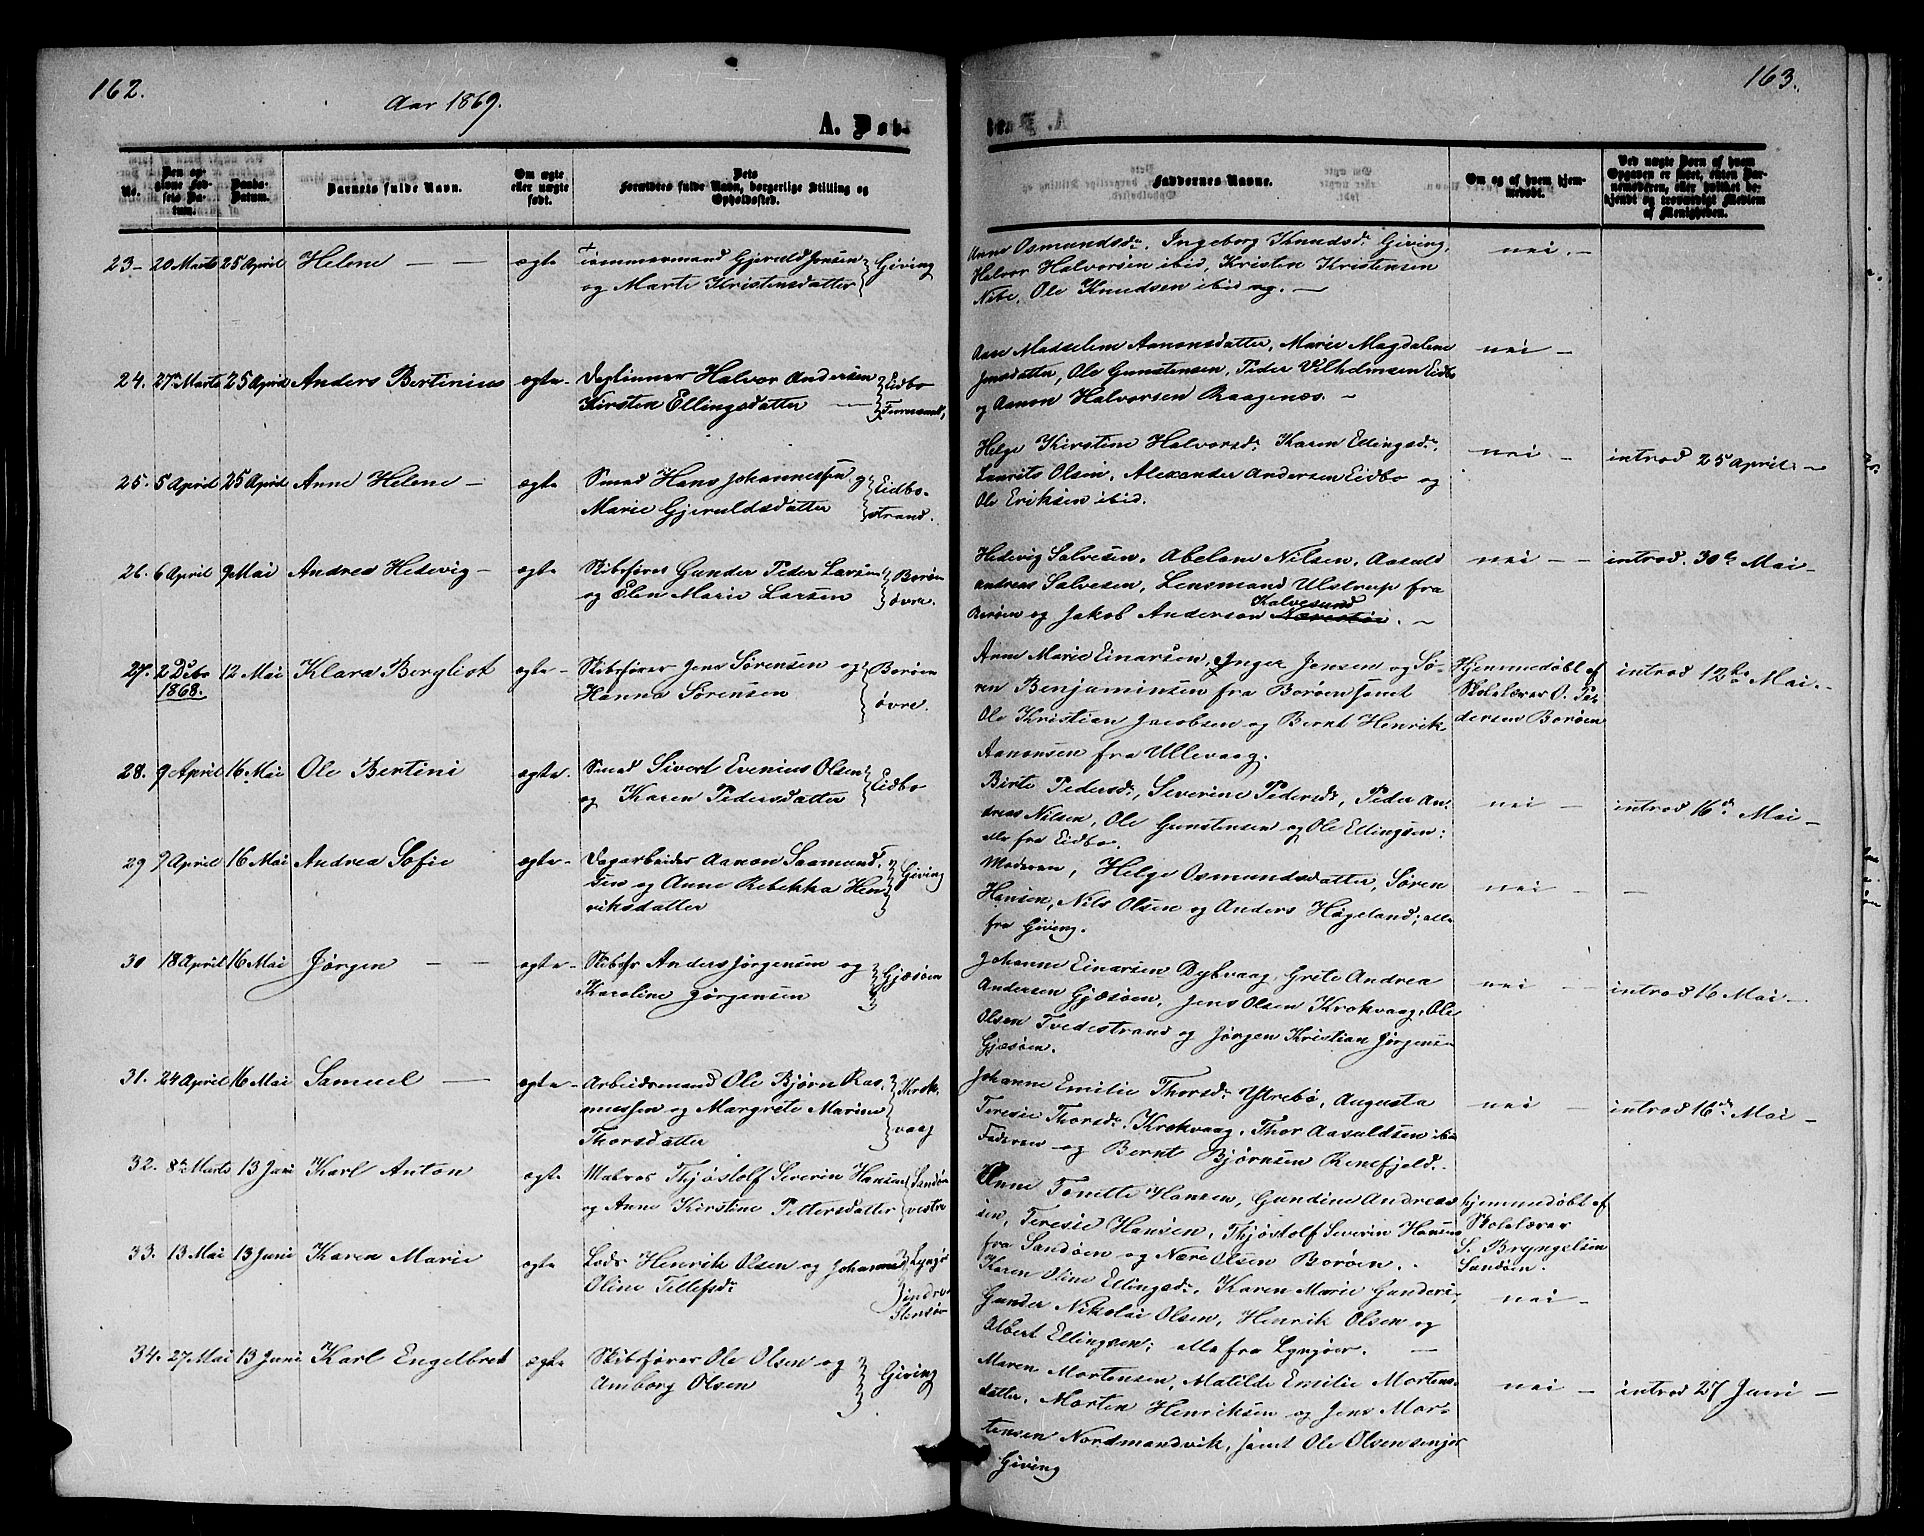 162.
Aar 1869.
A. Døb.
No.
Den opgivne Fødsels Datum.
Daabs-Datum.
Barnets fulde Navn.
Om ægte eller uægte født.
Dets Forældres fulde Navn, borgerlige Stilling og Opholdssted.
23 – 20 Marts 25 April Helene — — ægte Tømmermand Gjeruld Jensen
og Marte Kristensdatter } Giving
24. 27 Marts 25 April Anders Bertinius ægte - Daglønner Halvor Andersen
Kirsten Ellingsdatter — } Eidbo
25. 5 April 25 April Anne Helene – ægte Smed Hans Johannesen og
Marie Gjeruldsdatter } Eidbo-
strand.
26. 6 April 9 Mai Andrea Hedevig – ægte Skibsfører Gunder Peder Larsen
og Elen Marie Larsen } Borøen
øvre.
27. 2 Debr 1868. 12 Mai Klara Bergliot ægte - Skibsfører Jens Sørensen og
Hanna Sørensen } Borøen
øvre.
28. 9 April 16 Mai Ole Bertini ægte - Smed Sivert Evenius Olsen
og Karen Pedersdatter } Eidbo
29 9 April 16 Mai Andrea Sofie ægte - Dagarbeider Aanon Saamund-
sen og Anne Rebekka Hen-
riksdatter } Giving
30 18 April 16 Mai Jørgen — — ægte - Skibsfr Anders Jørgensen og
Karoline Jørgensen } Gjæsøen
31. 24 April 16 Mai Samuel — ægte - Arbeidsmand Ole Bjørn Ras-
mussen og Margrete Marine
Thorsdatter } Krok-
vaag
32. 8de Marts 13 Juni Karl Anton ægte Matros Thjøstolf Severin Hansen
og Anne Kirstine Pettersdatter } Sandøen
vestre
33. 13 Mai 13 Juni Karen Marie ægte Lods Henrik Olsen og Johanne
Oline Tellefsdr } Lyngør
indre
34. 27 Mai 13 Juni Karl Engelbret ægte Skibsfører Ole Olsen og
Amborg Olsen } Giving
163.
Faddernes Navne.
Om og af hvem hjemmedøbt.
Ved uægte Børn af hvem Opgaven er skeet, enten Barnemoderen, eller hvilket bekjendt og troværdigt Medlem af Menigheden.
Anne Osmundsdr, Ingeborg Knudsdr Giving,
Halvor Halvorsen ibid, Kristen Kristensen
Næbe, Ole Knudsen ibid og. —
nei. —
Aase Madselene Aanonsdatter, Marie Magdalene
Jensdatter, Ole Gunstensen, Peder Vilhelmsen Eidbo
og Aanon Halvorsen Raagenæs. –
nei –
Helge Kirstine Halvorsdr Karen Ellingsdr
Laurits Olsen, Alexander Andersen Eidbo og
Ole Eriksen ibid.
nei – introd 25 April –
Hedevig Salvesen, Abelone Nilsen, Aasuld
Andreas Salvesen, Lensmand Ulstrup fra
Borøen og Jakob Anderson Kalvesund. –
nei – – introd. 30te Mai –
Anne Marie Einarsen, Inger Jensen og Sø-
ren Benjaminsen fra Borøen samt
Ole Kristian Jacobsen og Bernt Henrik
Aanonsen fra Ullevaag.
Hjemmedøbt af
Skolelærer O. Pe-
dersen Borøen
introd 12te Mai. –
Birte Pedersdr, Severine Pedersdr, Peder An-
dreas Nilsen, Ole Gunstensen og Ole Ellingsen;
alle fra Eidbo.
nei – introd 16de Mai –
Moderen, Helge Osmundsdatter, Søren
Hansen, Nils Olsen og Anders Hageland; alle
fra Giving.
nei – –
Johanne Einarsen Dybvaag, Grete Andrea
Andersen Gjæsøen, Jens Olsen Krokvaag, Ole
Olsen Tvedestrand og Jørgen Kristian Jørgensen
Gjæsøen.
nei – introd 16 Mai –
Johanne Emilie Thorsdr Ytrebø, Augusta
Teresie Thorsdr Krokvaag, Thor Aasuldsen ibid
Faderen og Bernt Bjørnsen Renefjeld.
nei – introd 16de Mai –
Anne Tonette Hansen, Gundine Andreas-
sen, Teresie Hansen, Thjøstolf Severin Hansen
fra Sandøen og Nære Olsen Borøen.
hjemmedøbt af
Skolelærer
S. Bryngelsen
Sandøen.
Karen Oline Ellingsdr, Karen Marie Gunders.,
Gunder Nikolai Olsen, Henrik Olsen og
Albert Ellingsen; alle fra Lyngøer. —
nei –
Maren Mortensen, Matilde Emilie Mortens-
datter, Morten Henriksen og Jens Mor-
tensen Nordmandvik, samt Ole Olsen senjor
Giving
nei – introd 27 Juni –